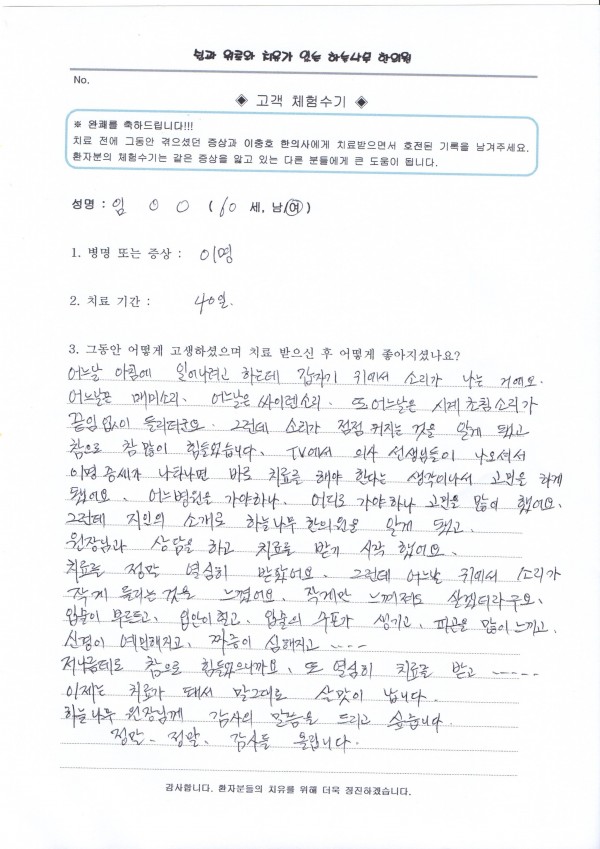 쉼과 위로와 치유가 있는 하늘나무 한의원
No.
◈ 고객 체험수기 ◈
※ 완쾌를 축하드립니다!!!
치료 전에 그동안 겪으셨던 증상과 이충호 한의사에게 치료받으면서 호전된 기록을 남겨주세요.
환자분의 체험수기는 같은 증상을 앓고 있는 다른 분들에게 큰 도움이 됩니다.
성명 : 임 ○ ○ ( 60 세, 남/여 )
1. 병명 또는 증상 : 이명
2. 치료 기간 : 40일.
3. 그동안 어떻게 고생하셨으며 치료 받으신 후 어떻게 좋아지셨나요?
어느날 아침에 일어나려고 하는데 갑자기 귀에서 소리가 나는 거예요.
어느날은 매미소리, 어느날은 싸이렌소리. 또 어느날은 시계 초침소리가
끝임없이 들리더군요. 그런데 소리가 점점 커지는 것을 알게 됐고
참으로 참 많이 힘들었습니다. TV에서 의사 선생님들이 나오셔서
이명 증세가 나타나면 바로 치료를 해야 한다는 생각이나서 고민을 하게
됐어요. 어느병원을 가야하나. 어디로 가야하나 고민을 많이 했어요.
그런데 지인의 소개로 하늘나무 한의원을 알게 됐고.
원장님과 상담을 하고 치료를 받기 시작 했어요.
치료를 정말 열심히 받았어요. 그런데 어느날 귀에서 소리가
작게 들리는 것을 느꼈어요. 작게만 느껴져도 살겠더라구요.
입술이 부르트고, 입안이 헐고, 입술의 수포가 생기고, 피곤을 많이 느끼고.
신경이 예민해지고, 짜증이 심해지고 ----
저나름데로 참으로 힘들었으니까요. 또 열심히 치료를 받고 -----
이제는 치료가 돼서 말그대로 살맛이 납니다.
하늘나무 원장님께 감사의 말씀을 드리고 싶습니다.
정말. 정말. 감사를 올립니다.
감사합니다. 환자분들의 치유를 위해 더욱 정진하겠습니다.